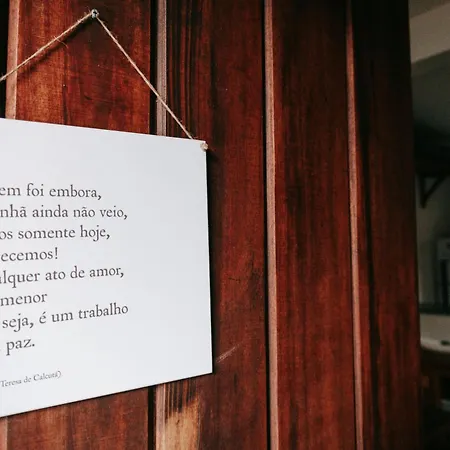 em foi embora,
nhã ainda não veio,
os somente hoje,
ecemos!
alquer ato de amor,
menor
seja, é um trabalho
paz.
Teresa de Calcutá)